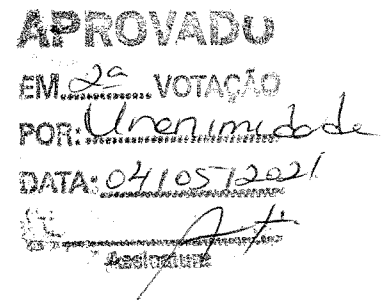 APROVADO
EM 2ª VOTAÇÃO
POR: Unanimidade
DATA: 04/05/2021
Assinatura